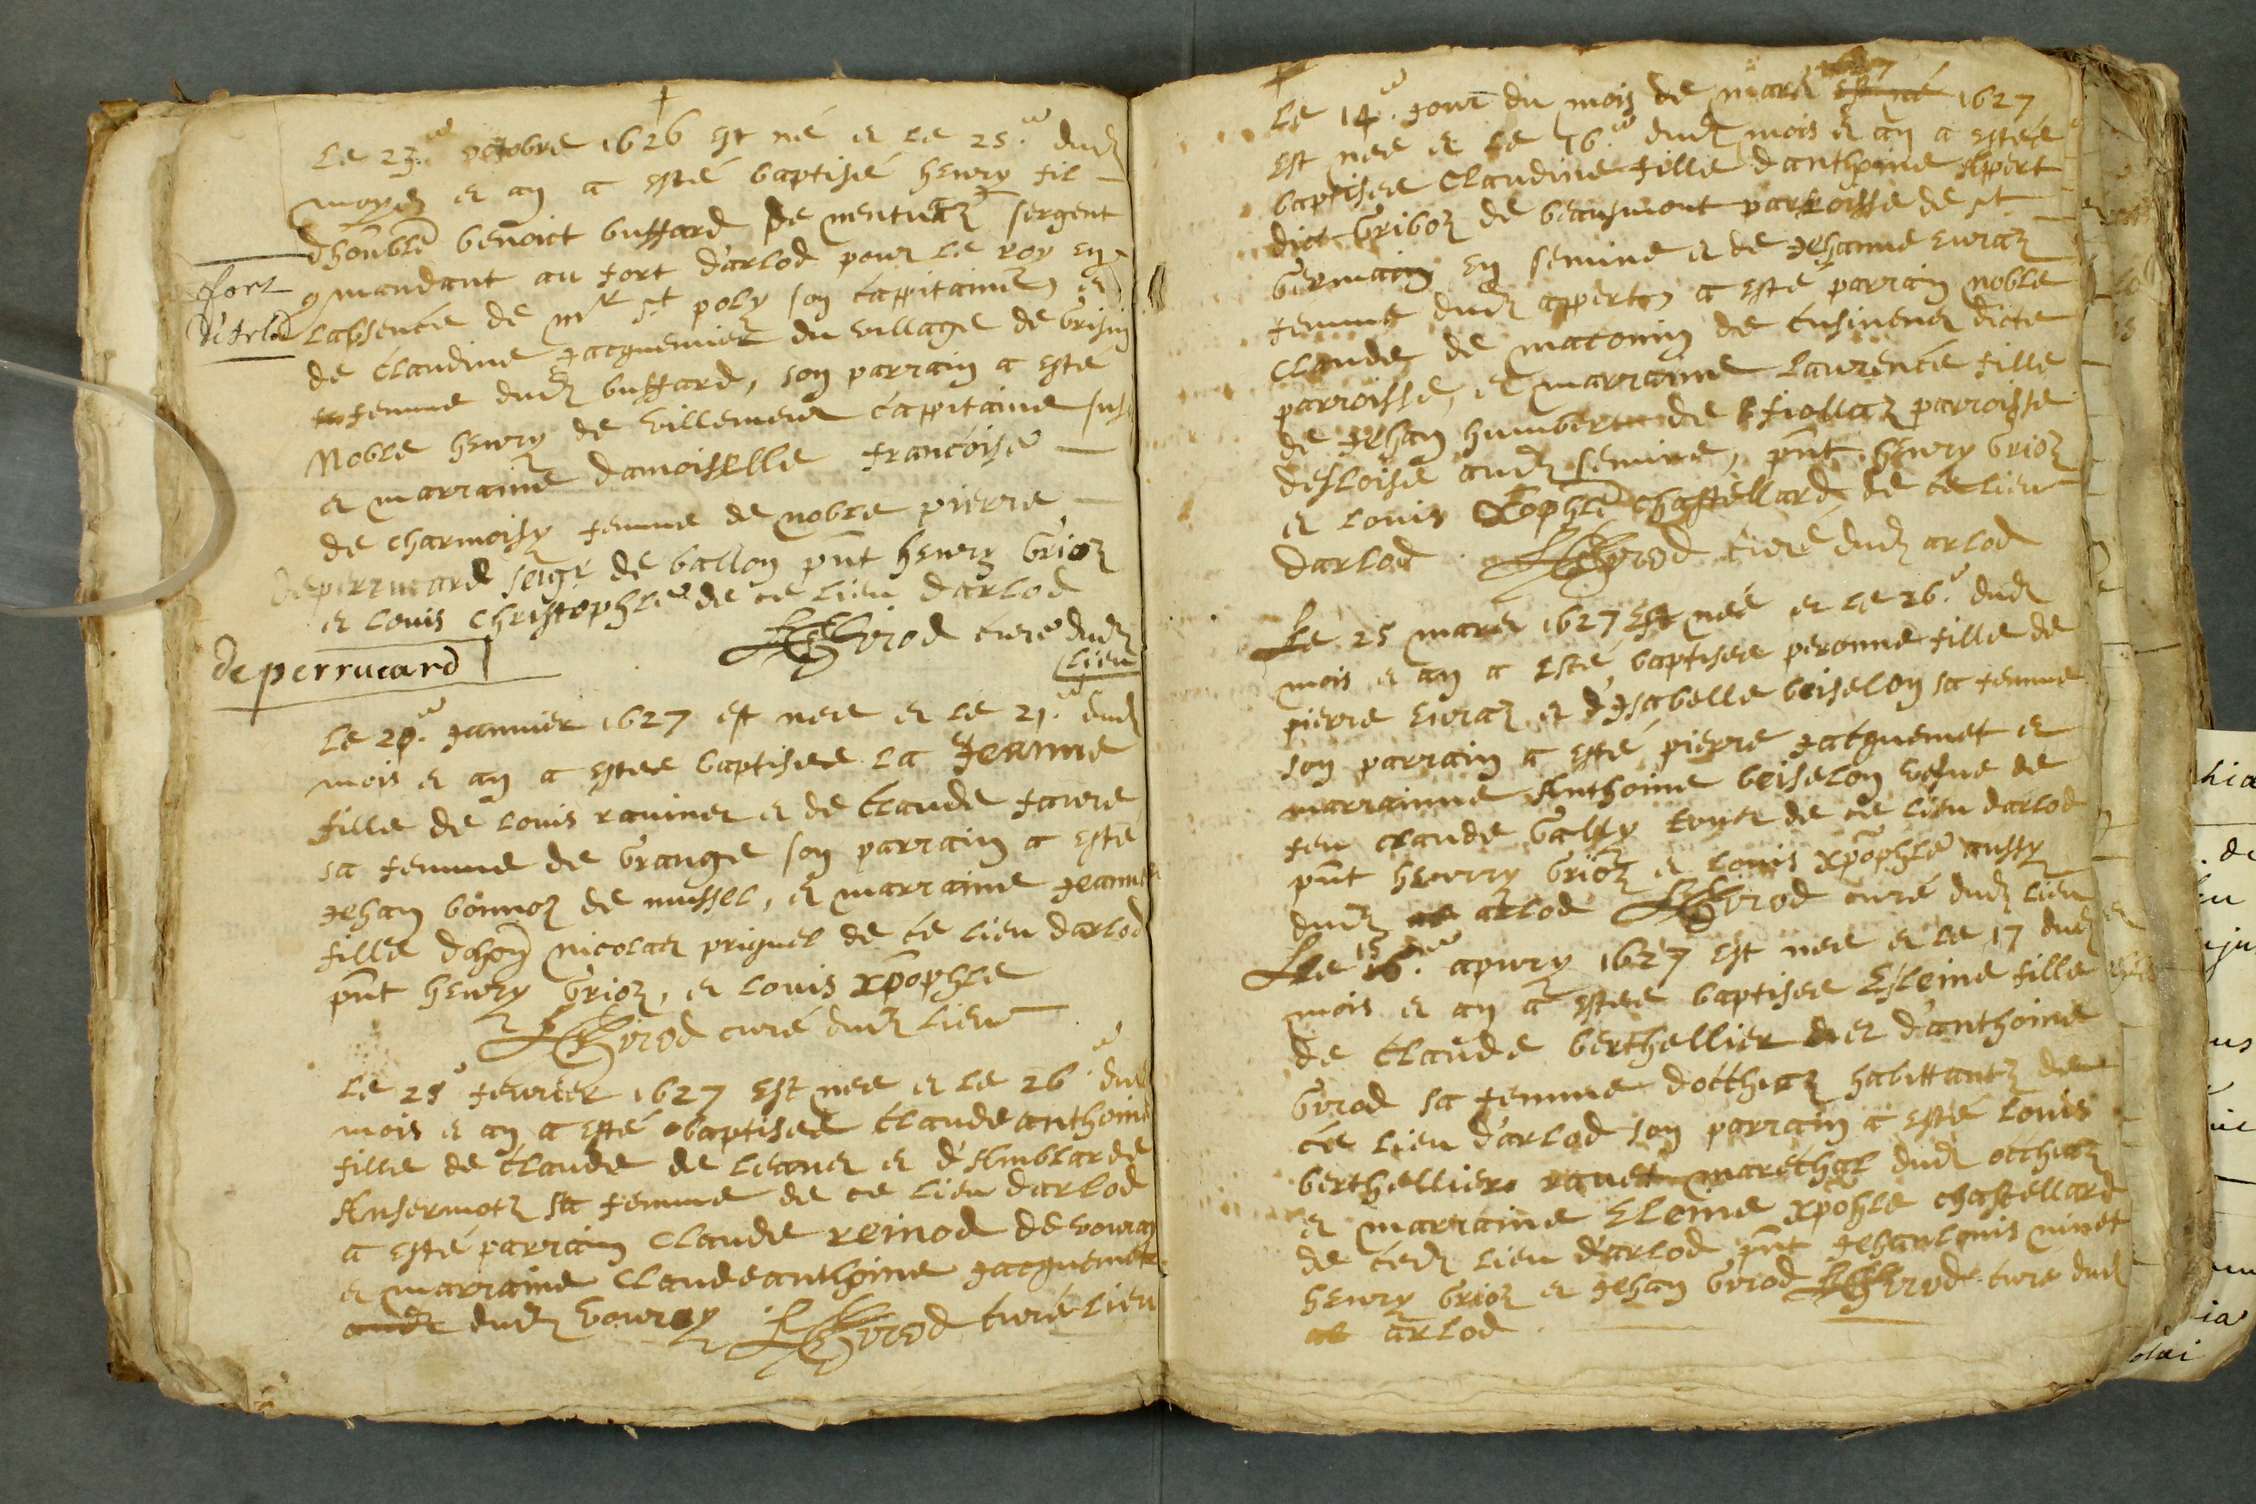 Le 23.e octobre 1626 est né et le 25.e dud
moys et an a esté baptisé henry fil
dhonble benoict buffard de mentuaz sergent
qmandant au fort d'arlod pour le roy en
labsence de mr st poly son cappitaine, et
de Claudine Jacquemier du village de Grisin
femme dud buffard, son parrain a esté
Noble henry de villemeur cappitaine sus
et marraine damoiselle françoise
de charmoisy femme de noble pierre
deperrucard seigr de ballon pnt henry Grioz
et louis christophle de ce lieu darlod
Girod curé dud
lieu
fort
d'Arlod
de perrucard
Le 20.e Januier 1627 est nee et le 21.e dud
mois et an a estee baptisee la Jeanne
fille de louis rauinet et de Claude faure
sa femme de Grange son parrain a esté
Jehan bonnoz de mussel, et marraine Jeanne
fille dehon nicolas priquel de ce lieu darlod
pnt henry Grioz, et louis xpophle
Girod curé dud lieu
Le 25e feurier 1627 est nee et le 26.e dud
mois et an a esté baptisee Claudeanthoine
fille de Claude de leaner et d'Amblarde
Ansermotz sa femme de ce lieu darlod
a esté parrain Claude reinod de vouray
et marraine Claudeanthoine Jacquemet
dud vouray Girod curé lieu
Le 14.e Jour du mois de mars est né 1627
est nee et le 16.e dud mois et an a estée
baptisee Claudine fille d'anthoine Appert
dict Griboz de beaumont parroisse de st
Germain en semine et de Jehanne euraz
femme dud appert, a esté parrain noble
Claude de maconin de cusinens dicte
parroisse, et marraine laurence fille
de Jehan humbert de fiollaz parroisse
desloise aud semine, pnt henry Grioz
et louis Xophle chastellard de ce lieu
darlod Girod curé dud arlod
Le 25 mars 1627 est neé et le 26.e dud
mois et an a esté baptisee peronne fille de
pierre euraz et d'Isabelle beiselon sa femme
son parrain a esté pierre Jacquemet et
marrainne Anthoine beiselon vefue de
feu claude Gallay touts de ce lieu darlod
pnt henrry Grioz et louis xpophle aussy
dud arlod Girod curé dud lieu
Le 15 16.e apury 1627 est nee et le 17 dud
mois et an a estee baptisee Esleine fille
de Claude berthellier et d'anthoine
Girod sa femme docthiaz habittantz de
ce lieu d'arlod son parrain a esté louis
berthellier marechal dud octhiaz
et marraine Eleine xpohle chastellard
de ced lieu d'arlod pnt Jehanlouis ninet
henry Grioz et Jehan Girod Girod curé dud
arlod